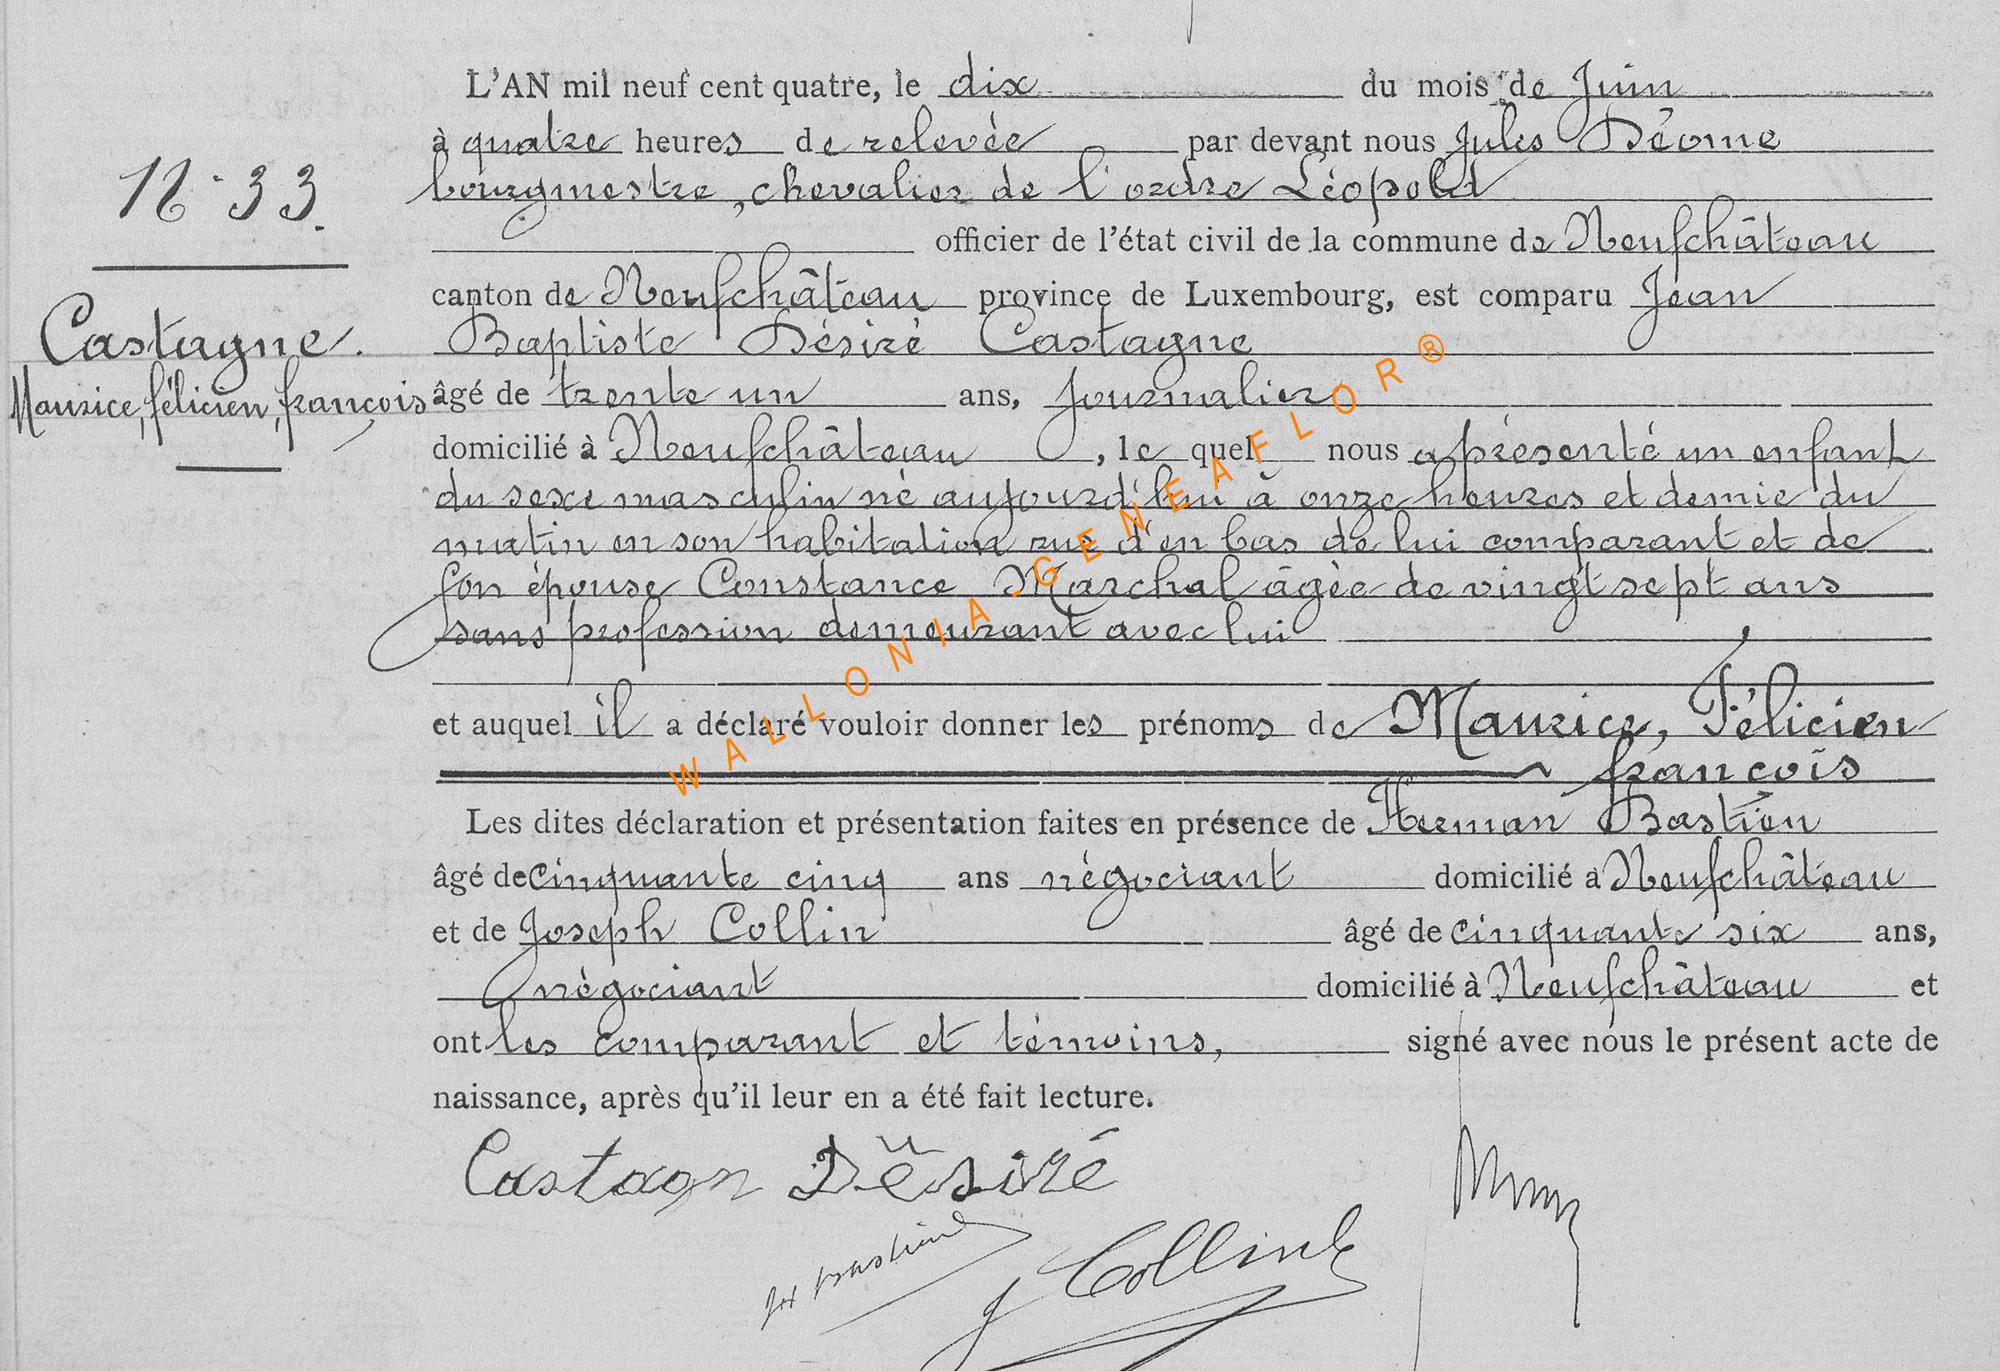 L'AN mil neuf cent quatre, le dix du mois de Juin
à quatre heures de relevée par devant nous Jules Déome
bourgmestre, chevalier de l'ordre Léopold
officier de l'état civil de la commune de Neufchâteau
N° 33.
canton de Neufchâteau province de Luxembourg, est comparu Jean
Baptiste Désiré Castagne
Castagne.
Maurice, félicien, françois
âgé de trente un ans, journalier
domicilié à Neufchâteau, le quel nous a présenté un enfant
du sexe masculin né aujourd'hui à onze heures et demie du
matin en son habitation rue d'en bas de lui comparant et de
son épouse Constance Marchal âgée de vingt sept ans
sans profession demeurant avec lui
et auquel il a déclaré vouloir donner les prénoms de Maurice, Félicien
françois
Les dites déclaration et présentation faites en présence de Herman Bastien
âgé de cinquante cinq ans négociant domicilié à Neufchâteau
et de Joseph Collin âgé de cinquante six ans,
négociant domicilié à Neufchâteau et
ont les comparant et témoins, signé avec nous le présent acte de
naissance, après qu'il leur en a été fait lecture.
Castagn Désiré
J Collin
WALLONIA GENEAFLOR®